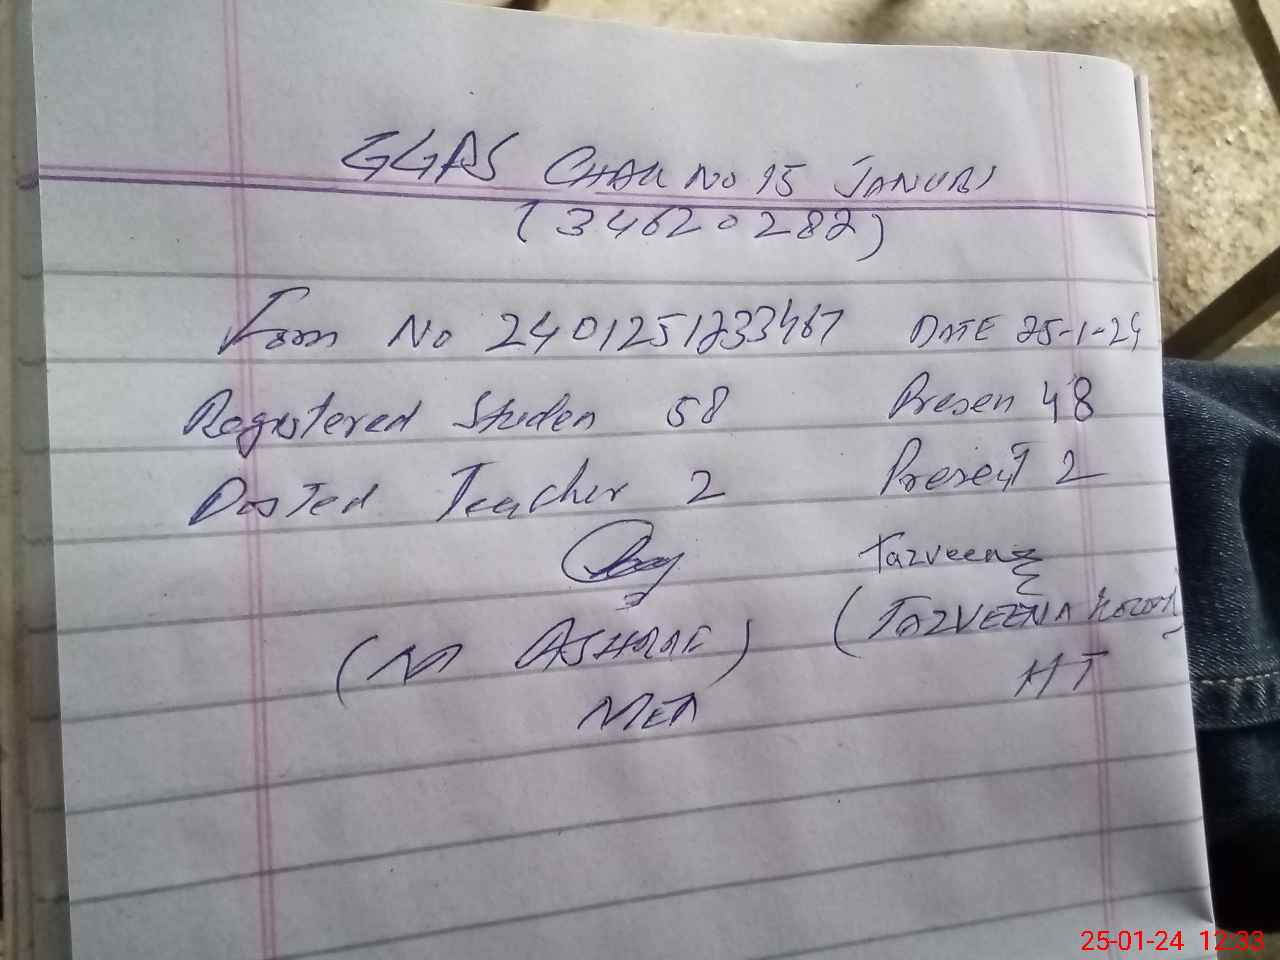 GGPS CHAK NO 15 JANUBI
(34620282)
Form No 2401251233467 DATE 25-1-24
Registered Studen 58 Presen 48
Posted Teacher 2 Present 2
Tazveena
(M ASHRAF) (TAZVEENA
MEA HT
25-01-24 12:33